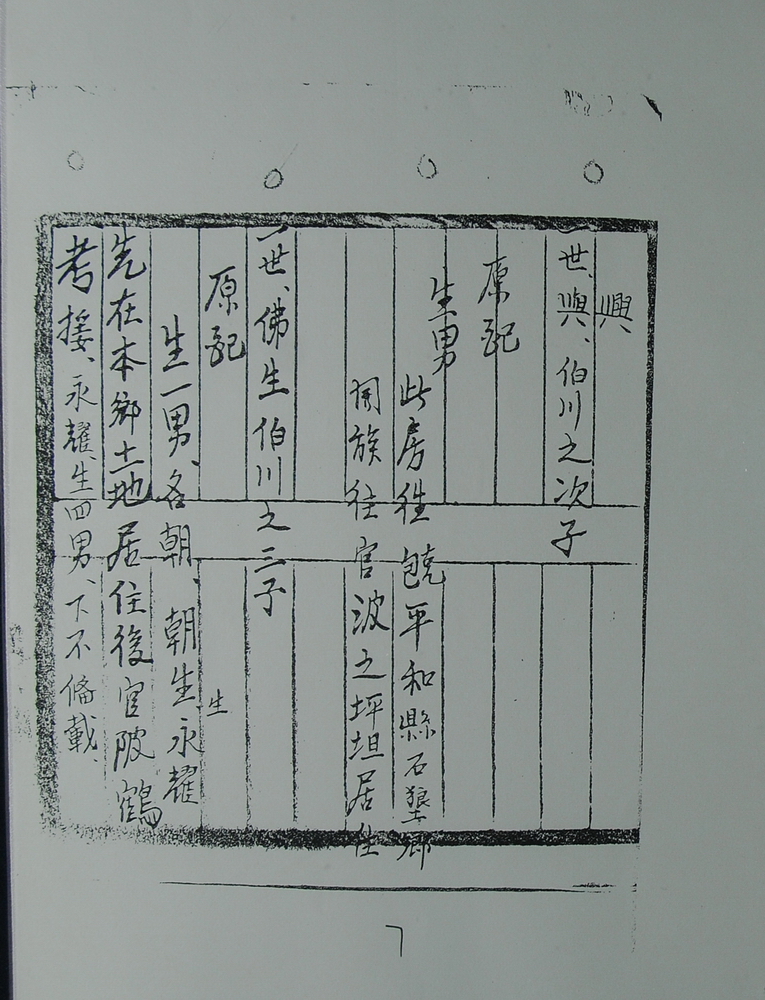 興
世、興、伯川之次子
原配
生男
此房往饒平和縣石塱鄉
開族往官波之坪坦居住
一世、佛生伯川之三子
原配
生
生一男、名朝、朝生永耀
先在本鄉土地居住後官陂鶴
考接、永耀、生四男、下不偹載、
7